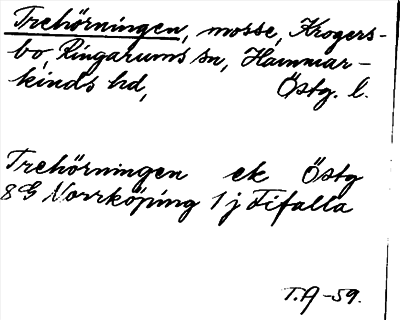 Trehörningen, mosse, Krogers-
bo, Ringarums sn, Hammar-
kinds hd, Östg. l.
Trehörningen ek Östg
8G Norrköping 1 j Fifalla
T.A-59.